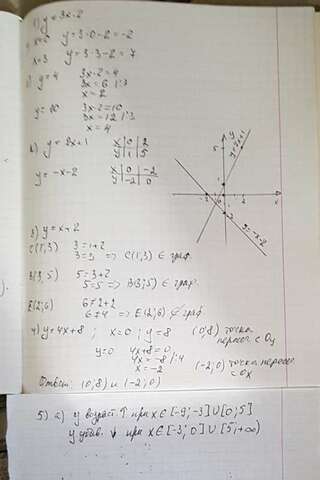 1) y = 3x-2
x=0 y = 3·0-2 = -2
x=3 y = 3·3-2 = 7
y = 4 3x-2 = 4
3x = 6 |:3
x = 2
y = 10 3x-2 = 10
3x = 12 |:3
x = 4
2) y = 2x+1 x 0 2
y 1 5
y = -x-2 x 0 -2
y -2 0
y=2x+1
y=-x-2
3) y = x+2
C(1,3) 3 = 1+2
3 = 3 => C(1,3) ∈ граф.
B(3,5) 5 = 3+2
5 = 5 => B(3;5) ∈ граф.
E(2;6) 6 ≠ 2+2
6 ≠ 4 => E(2;6) ∉ граф
4) y = 4x+8 ; x = 0 ; y = 8 (0;8) точка
пересеч с Oy
y=0 4x+8 = 0
4x = -8 |:4
x = -2 (-2;0) точка пересеч
с Ox
Ответ: (0,8) и (-2;0)
5) a) y возраст. ↑ при x ∈ [-9;-3] U [0;5]
y убыв. ↓ при x ∈ [-3;0] U [5;+∞)